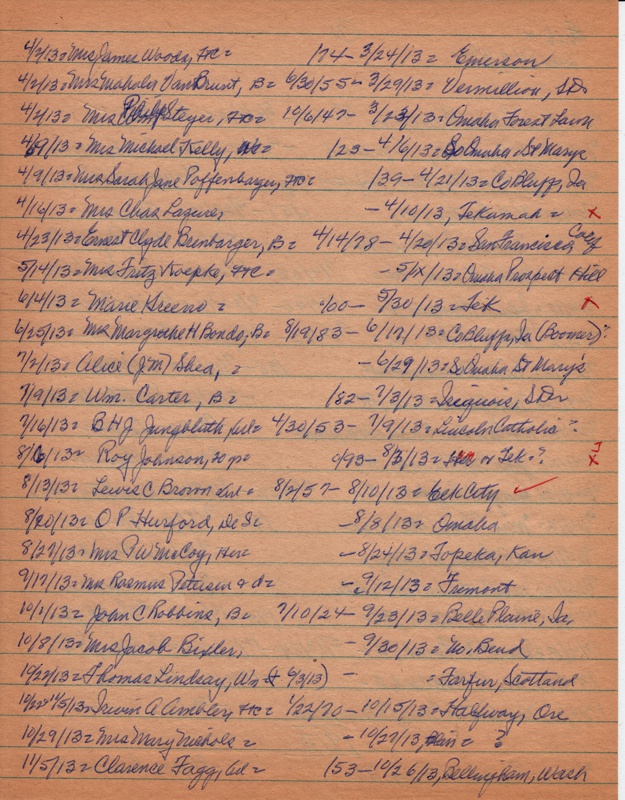 4/2/13 = Mrs James Woods, Hc = /74 - 3/24/13 = Emerson
4/2/13 = Mrs Mahala VanBrunt, B = 6/30/55 - 3/29/13 = Vermillion, SD
4/2/13 = Mrs Steyer, Hc = 10/6/47 - 3/23/13 = Omaha Forest Lawn
4/9/13 = Mrs Michael Kelly, = /23 - 4/6/13 = So Omaha St Marys
4/9/13 = Mrs Sarah Jane Poffenbarger, Hc = /39 - 4/21/13 = Co Bluffs, Ia
4/16/13 = Mrs Chas Lazure, - 4/10/13, Tekamah = x
4/23/13 = Ernest Clyde Bunbarger, B = 4/14/78 - 4/20/13 = San Francisco, Calif
5/14/13 = Mrs Fritz Koepke, Hc = - 5/1x/13 = Omaha Prospect Hill
6/4/13 = Marie Greeno = 0/00 - 5/30/13 = Tek x
6/25/13 = Mrs Margrethe H Bondo, B = 8/19/83 - 6/17/13 = Co Bluffs, Ia (Boomer)?
7/2/13 = Alice (J M) Shea, = - 6/29/13 = So Omaha St Mary's
7/9/13 = Wm. Carter, B = /82 - 7/3/13 = Iroquois, SD
7/16/13 = B H J Jungbluth, = 4/30/53 - 7/9/13 = Lincoln Catholic ?
8/6/13 = Roy Johnson, 20 yr = 0/93 - 8/3/13 = or Tek = ? x
8/13/13 = Lewis C Brown = 8/2/57 - 8/10/13 = Tek City ✓
8/20/13 = O P Hurford, De So - 8/8/13 = Omaha
8/27/13 = Mrs P W McCoy, Her = - 8/24/13 = Topeka, Kan
9/17/13 = Mrs Rasmus Petersen & d = - 9/12/13 = Fremont
10/1/13 = John C Robbins, B = 7/10/24 - 9/23/13 = Belle Plaine, Ia
10/8/13 = Mrs Jacob Bixler, - 9/30/13 = No. Bend
10/22/13 = Thomas Lindsay, Wn (d 6/3/13) - = Farfur, Scotland
10/22 11/5/13 = Irwin A Ambler, Hc = 1/22/70 - 10/15/13 = Halfway, Ore
10/29/13 = Mrs Mary Nichols = - 10/27/13, Blair = ?
11/5/13 = Clarence Fagg, Cal = /53 - 10/26/13, Bellingham, Wash